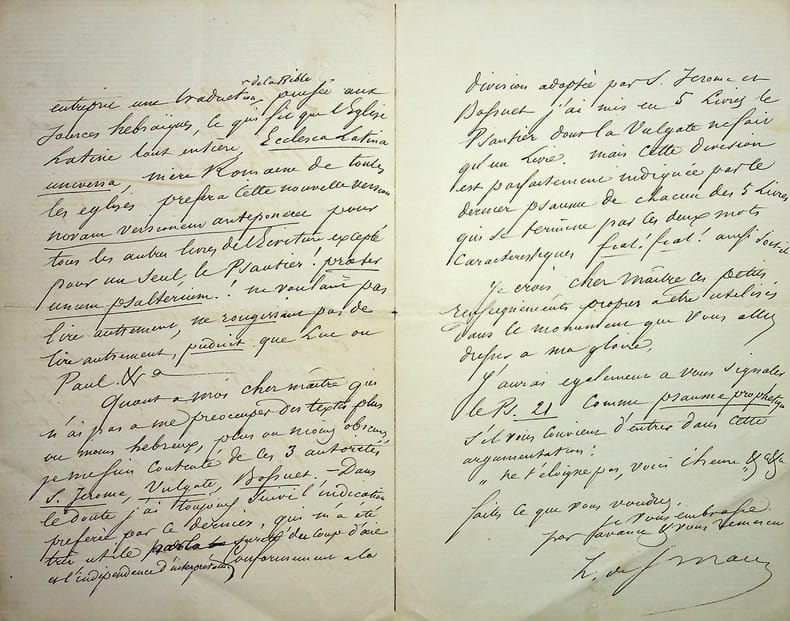 de la Bible
entrepris une traduction, puisée aux
sources hébraïques, ce qui fit que l'Eglise
Latine tout entière Ecclesia Latina
universa, mère Romaine de toutes
les eglises préfera cette nouvelle version
novam versionem anteponeret pour
tous les autres livres de l'Ecriture excepté
pour un seul, le Psautier! præter
unum psalterium! ne voulant pas
lire autrement, ne rougissant pas de
lire autrement, puduit que Luc ou
Paul &a
Quant a moi cher maître qui
n'ai pas a me préoccuper des textes plus
ou moins hebreux, plus ou moins obscurs
je me suis contenté de ces 3 autorités
S. Jerome, Vulgate, Bossuet. - Dans
le doute j'ai toujours suivi l'indication
préférée par ce dernier, qui m'a été
très utile par la sureté du coup d'œil
et l'indépendance d'interprétation Conformement a la
division adoptée par S. Jerome et
Bossuet j'ai mis en 5 Livres le
Psautier dont la Vulgate ne fait
qu'un Livre. mais cette division
est parfaitement indiquée par le
dernier psaume de chacun des 5 Livres
qui se termine par ces deux mots
caracteristiques fiat! fiat! ainsi soit il
Je crois cher maître ces petits
renseignements propres a être utilisés
dans le monument que vous allez
dresser a ma gloire.
J'aurais egalement a vous signaler
le Ps. 21 comme psaume prophetique
s'il vous convient d'entrer dans cette
argumentation!
" ne t'éloigne pas, voici l'heure &a &a
faites ce que vous voudrez,
je vous embrasse
par avance & vous remercie